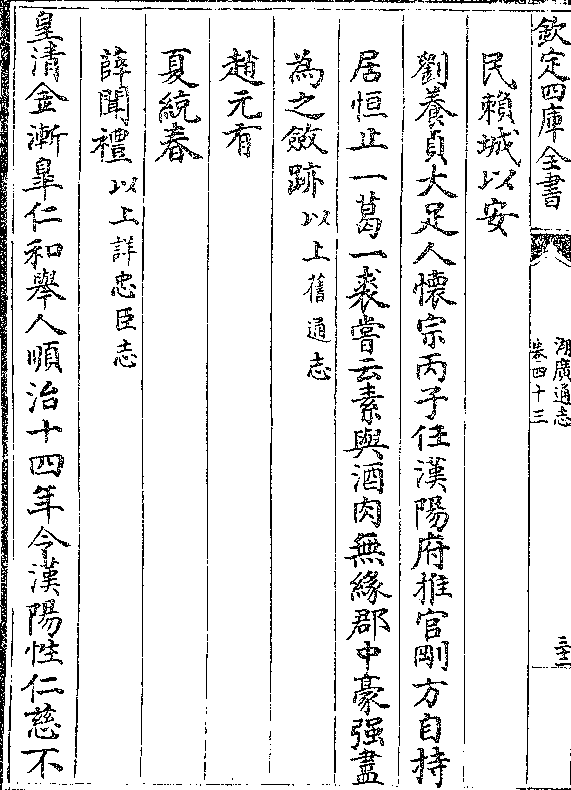 欽定四庫全書
湖廣通志
卷四十三
民賴城以安
劉養貞大足人懷宗丙子任漢陽府推官剛方自持
居恒止一葛一裘嘗云素與酒肉無緣郡中豪强盡
為之斂跡以上舊通志
趙元有
夏統春
薛聞禮以上詳忠臣志
皇清金漸皐仁和舉人順治十四年令漢陽性仁慈不